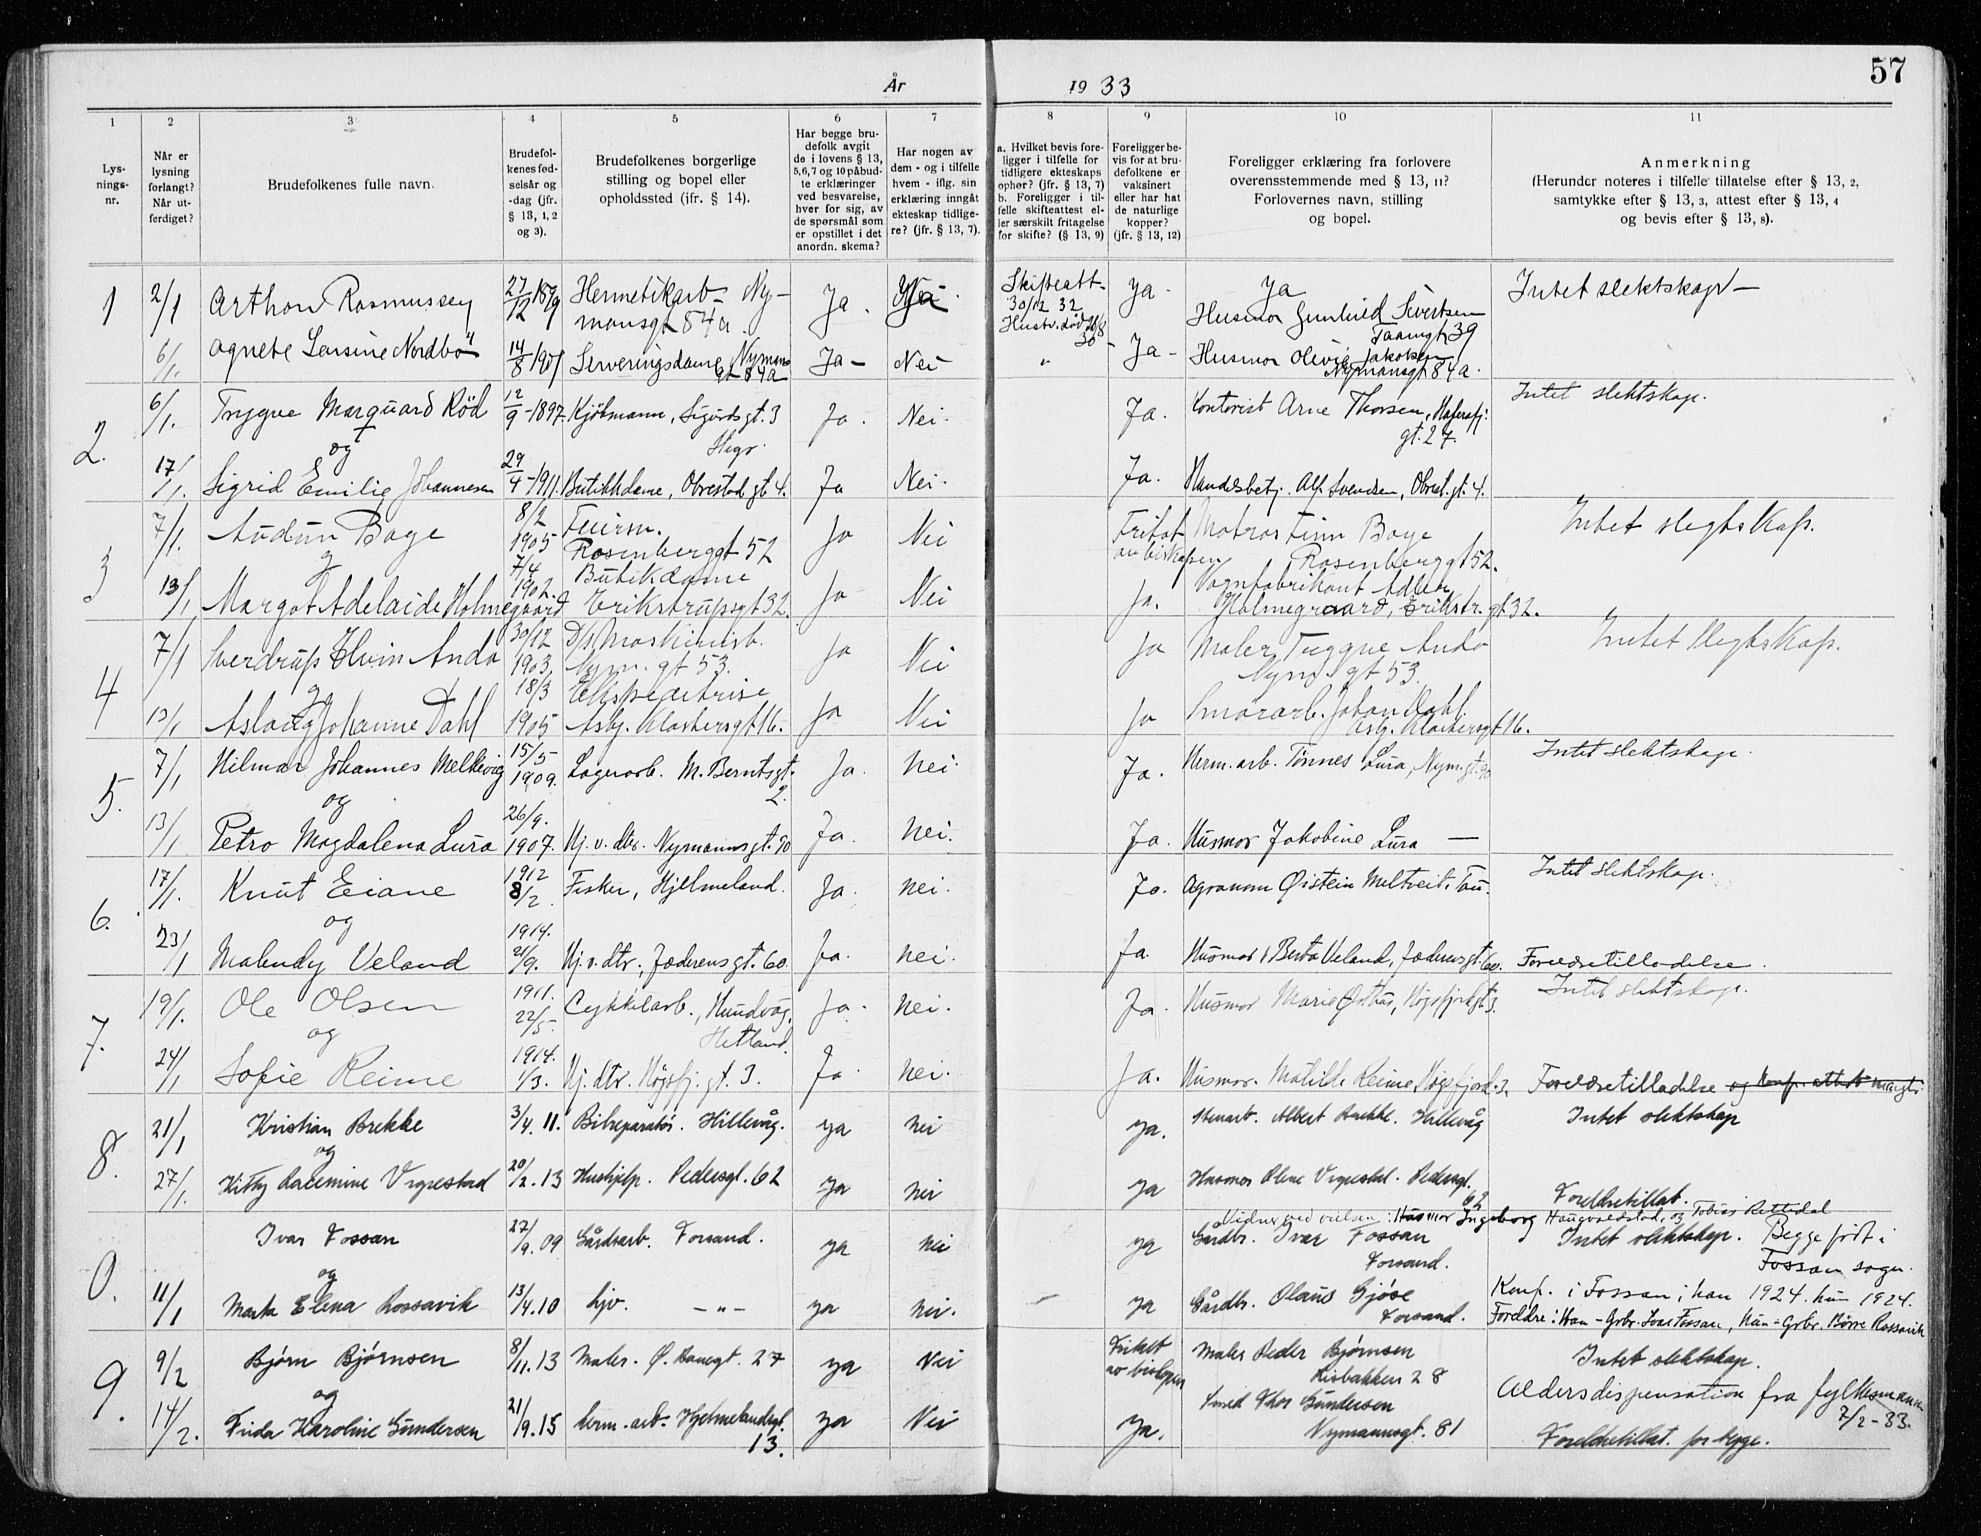 År 1933
57
1 2 3 4 5 6 7 8 9 10 11
Lys-
nings-
nr.
Når er
lysning
forlangt?
Når ut-
ferdiget?
Brudefolkenes fulle navn.
Brudefol-
kenes fød-
selsår og
-dag (jfr.
§ 13, 1, 2
og 3).
Brudefolkenes borgerlige
stilling og bopel eller
opholdssted (jfr. § 14).
Har begge bru-
defolk avgit
de i lovens § 13,
5, 6, 7 og 10 påbud-
te erklæringer
ved besvarelse,
hver for sig, av
de spørsmål som
er opstillet i det
anordn. skema?
Har nogen av
dem - og i tilfelle
hvem - iflg. sin
erklæring inngått
ekteskap tidlige-
re? (jfr. § 13, 7).
a. Hvilket bevis fore-
ligger i tilfelle for
tidligere ekteskaps
ophør? (jfr. § 13, 7)
b. Foreligger i til-
felle skifteattest el-
ler særskilt fritagelse
for skifte? (§ 13, 9)
Foreligger be-
vis for at bru-
defolkene er
vaksinert
eller har hat
de naturlige
kopper?
(jfr. § 13, 12)
Foreligger erklæring fra forlovere
overensstemmende med § 13, 11?
Forlovernes navn, stilling
og bopel.
Anmerkning
(Herunder noteres i tilfelle tillatelse efter § 13, 2,
samtykke efter § 13, 3, attest efter § 13, 4
og bevis efter § 13, 8).
1 2/1 Arthon Rasmussen 27/12 1879 Hermetikarb. Ny-
mansgt 84a. Ja. Ja. Skifteatt-
30/12 32
Hustr. død 30 - Ja - Ja
Husmor Gunhild Sivertsen
39 Intet slektskap -
6/1. Agnete Lensine Nordbø 14/8 1901 Serveringsdame Nymans
gt 84a Ja - Nei " Ja - Husmor Olivie Jakobsen
Nymansgt 84a.
2. 6/1. Trygve Marquard Rød 12/9 - 1897. Kjøbmann, Sigurdsgt. 3 Ja. Nei. Ja. Kontorist Arne Thorsen, Hafrsfj:
gt. 27. Intet slektskap.
og
17/1. Sigrid Emilie Johannesen 29/4 - 1911. Butikkdame, Obrestad gt. 4. Ja Nei. Ja. Handelsbetj. Alf Svendsen, Obrest. gt. 4.
3 7/1. Audun Boge 8/2 1905 Feirsv.
Rosenberggt 52 Ja Nei Fritat
av biskopen Matros Finn Boge
Rosenberggt 52. Intet slegtskap.
g
13/1 Margot Adelaide Holmegaard 7/4 1902. Butikdame
Erikstrupsgt 32. Ja Nei Ja. Vognfabrikant Adler
Holmegraard, Erikstr. gt 32.
4 7/1 Sverdrup Elvin Anda 30/12 1903 D/s. maskinist.
Nym. gt 53. Ja Nei Ja Maler Tryggve Anda
Nym. gt 53. Intet slegtskap.
g
13/1 Aslaug Johanne Dahl 18/3 1905 Ekspeditrise
Asbj. Klostersgt 16. Ja Nei Ja Smørarb. Johan Dahl
Asbj. Klostersgt 16.
5. 7/1 Hilmar Johannes Melkevig 15/5 1909. Lagerarb. M. Berntsgt.
2. Ja. Nei. Ja. Herm. arb. Tønnes Lura, Nym. gt. 90 Intet slektskap.
og
13/1 Petra Magdalena Lura 26/9. 1907. Hj. v. dtr. Nymannsgt. 90 Ja. Nei. Ja. Husmor Jakobine Lura —
6. 17/1. Knut Eiane 1912 8/2 Fisker, Hjelmeland. Ja. Nei. Ja. Agronom Øistein Meltveit, Tau. Intet slektskap.
og
23/1 Malendy Veland 1914. 21/9. Hj. v. dtr., Jæderensgt. 60 Ja. Nei. Ja. Husmor Berta Veland, Jæderensgt. 60. Foreldretilladelse.
7. 19/1. Ole Olsen 1911. 22/5. Cykkelarb., Hundvåg,
Hetland. Ja. Nei. Ja. Husmor Marie Østhus, Høgsfjordgt 3. Intet slektskap.
og
24/1 Sofie Reime 1914. 1/3. Hj. dtr. Høgsfj. gt. 3. Ja. Nei. Ja. Husmor. Matilde Reime, Høgsfjord. 3. Foreldretilladelse og konf. attest mangl.
8. 21/1 Kristian Brekke 3/4. 11. Bilreparatør. Hillevåg. ja nei ja. Albert Brekke. Hillevåg Intet slektskap
og
27/1. Kitty Vigrestad 20/2. 13 Hushjelp. Pedersgt. 62 ja nei ja Husmor Olene Vigrestad. Pedersgt.
62 Foreldretillat.
Vidner ved vielsen: Husmor Ingeborg Haugvaldstad, og Tobias Rettedal
0. Ivar Fossan 27/9. 09 Gårdsarb. Forsand. ja nei ja Gårdbr. Ivar Fossan
Forsand. Intet slektskap. Begge født i
Fossan sogn.
og
11/1 Marta Elena Rossavik 13/4. 10 hjv. — " — ja nei. ja Gårdbr. Olaus Gjøse
Forsand. Konf. i Fossan; han 1924. hun 1924.
Foreldre: Han - Grbr. Ivar Fossan, Hun - Grbr. Børre Rossavik
9. 9/2 Bjørn Bjørnsen 8/11. 13 Maler. Ø. Banegt. 27 ja Nei Fritat
av biskopen Maler Peder Bjørnsen
Risbakken 28 Intet slektskap.
og
14/2. Frida Karoline Gundersen 21/9. 15 herm. arb. Hjelmelandsgt.
13. ja Nei Ja. Smed Thor Gundersen
Nymannsgt. 81 Aldersdispensation fra fylkesmannen
7/2 - 33.
Foreldretillat. for begge.